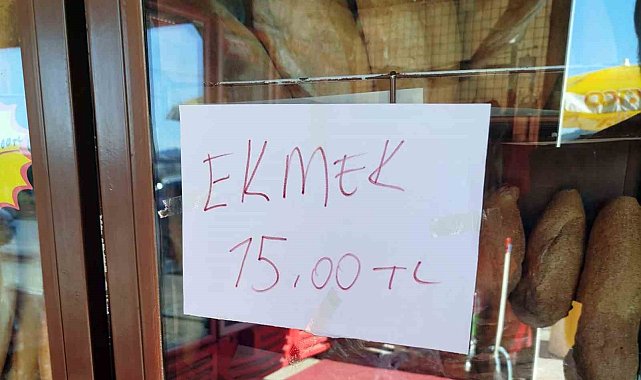 EKMEK
15.00 TL